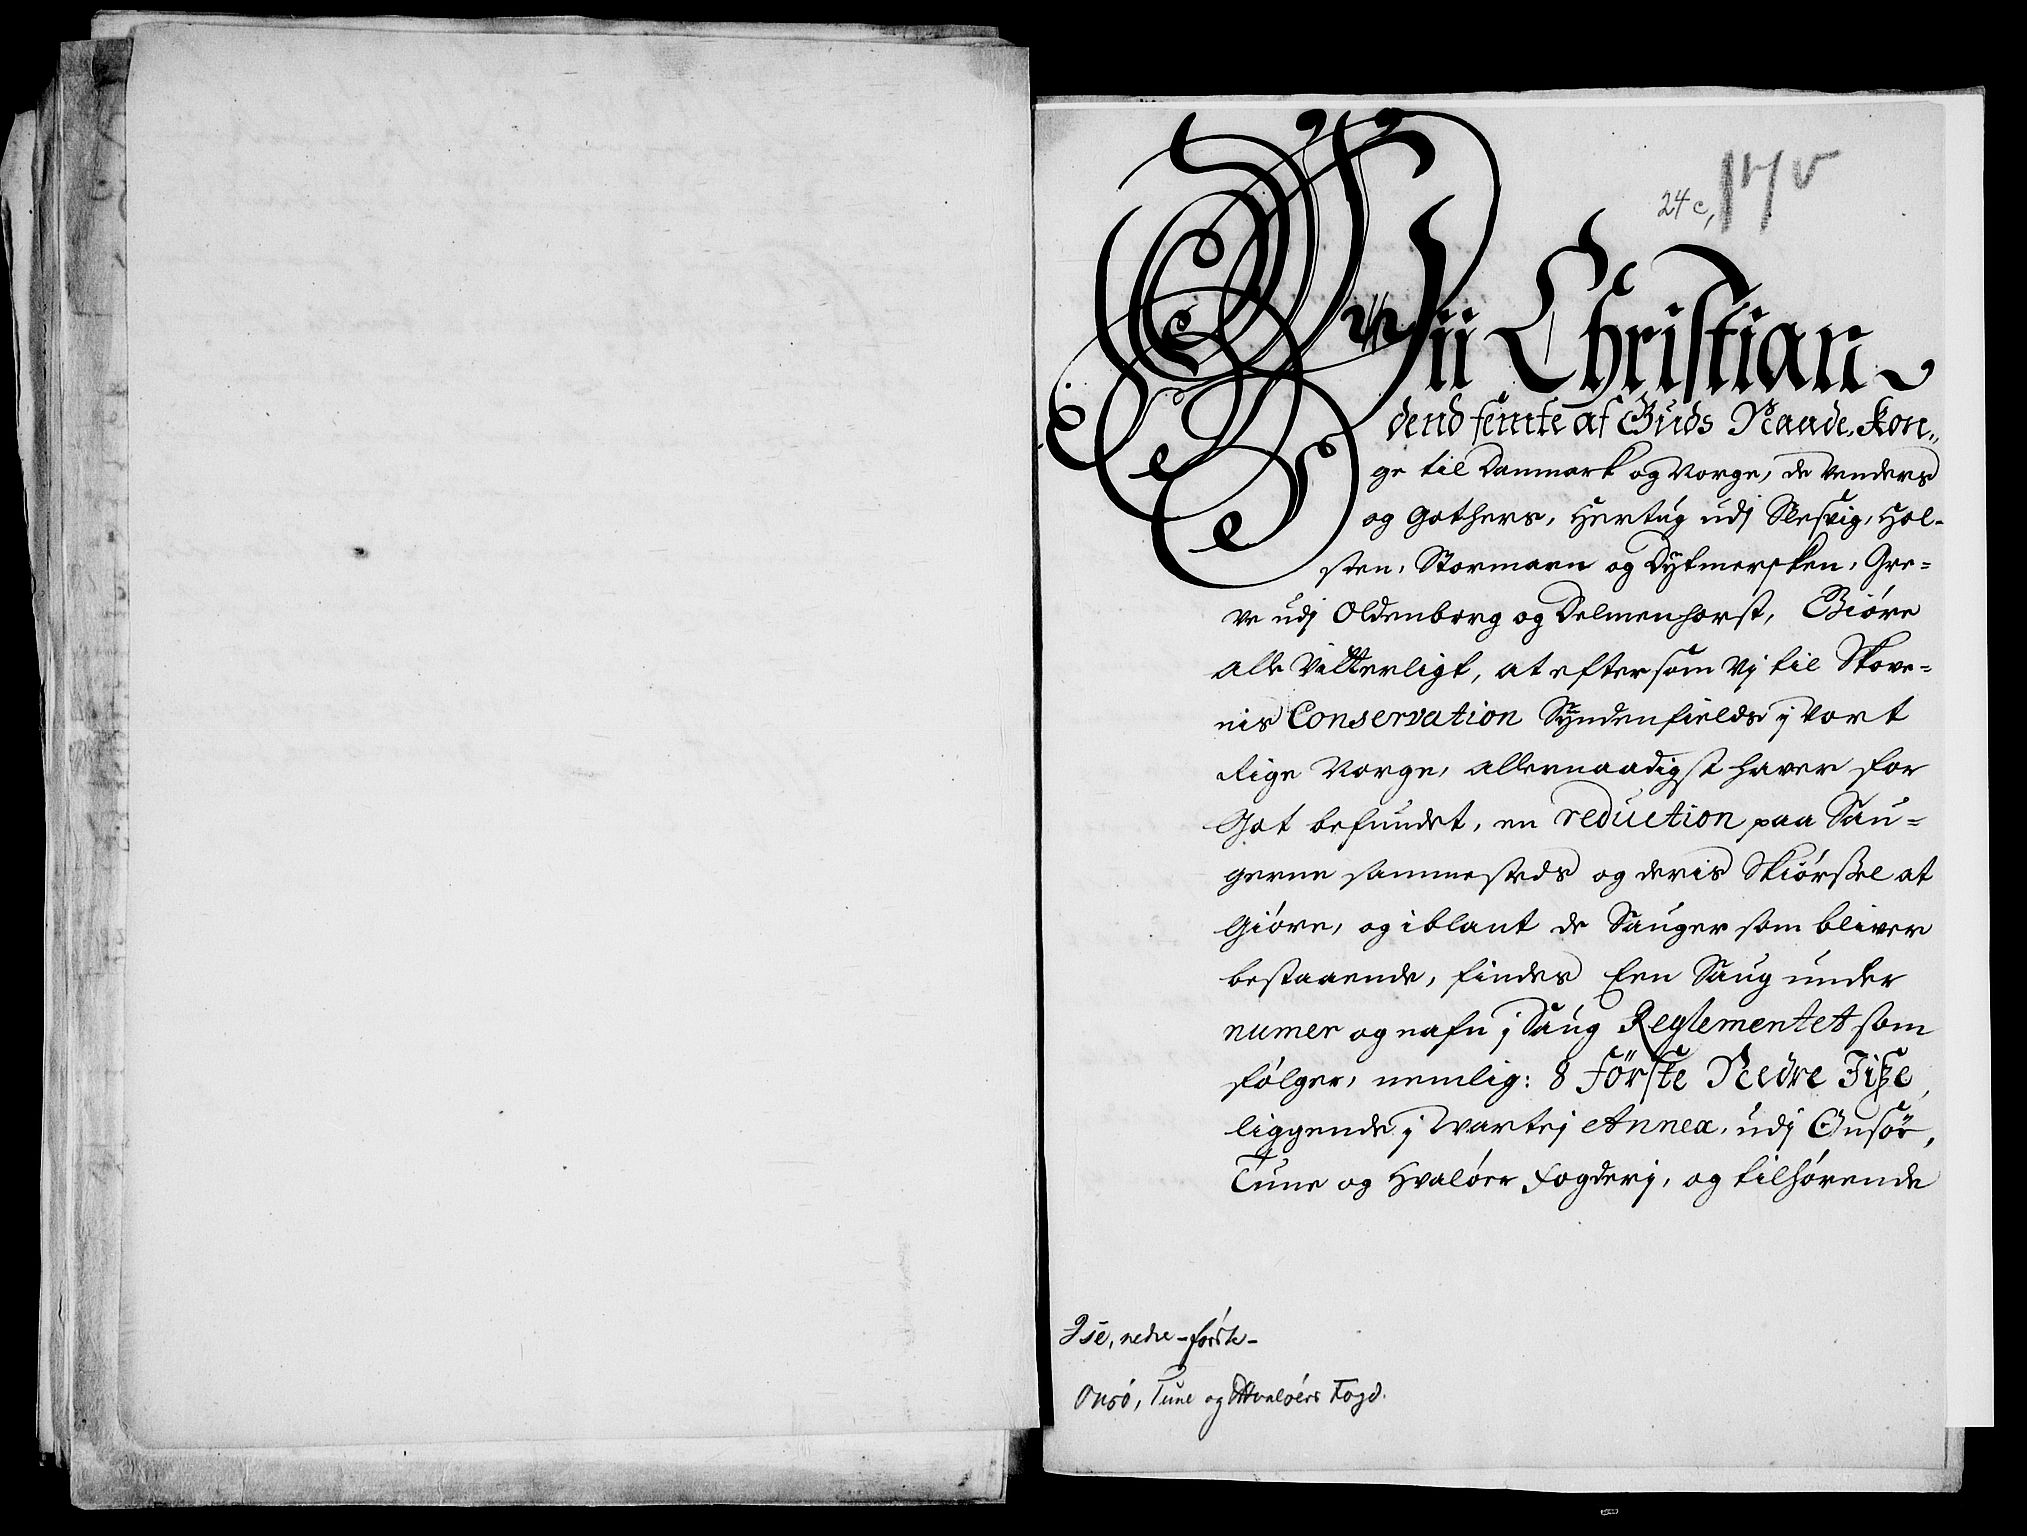 24 c,
Wii Christian
dend femte af Guds Naade, Kon„
ge til Danmark og Norge, de Venders
og Gothers, Hertug udj Slesvig, Hol-
sten, Stormarn og Dytmersken, Gre=
ve udj Oldenborg og Delmenhorst, Giøre
alle Vitterligt, at eftersom Vj til Skove=
nis Conservation Syndenfields j Vort
Rige Norge, allernaadigst haver for
Got befundet, en reduction paa Sau=
gerne sammesteds og deris Skiørßel at
Giøre, og iblant de Sauger som bliver
bestaaende, findes Een Saug under
numer og nafn j Saug Reglementet som
følger, nemlig: 8 Förste Nedre Jiße,
liggende j Wartej Annex, udj Onsöe,
Tune og Hvaløer Fogderj, og tilhørende
Ise, nedre - første -
Onsö, Tune og Hvaløers Fogd.